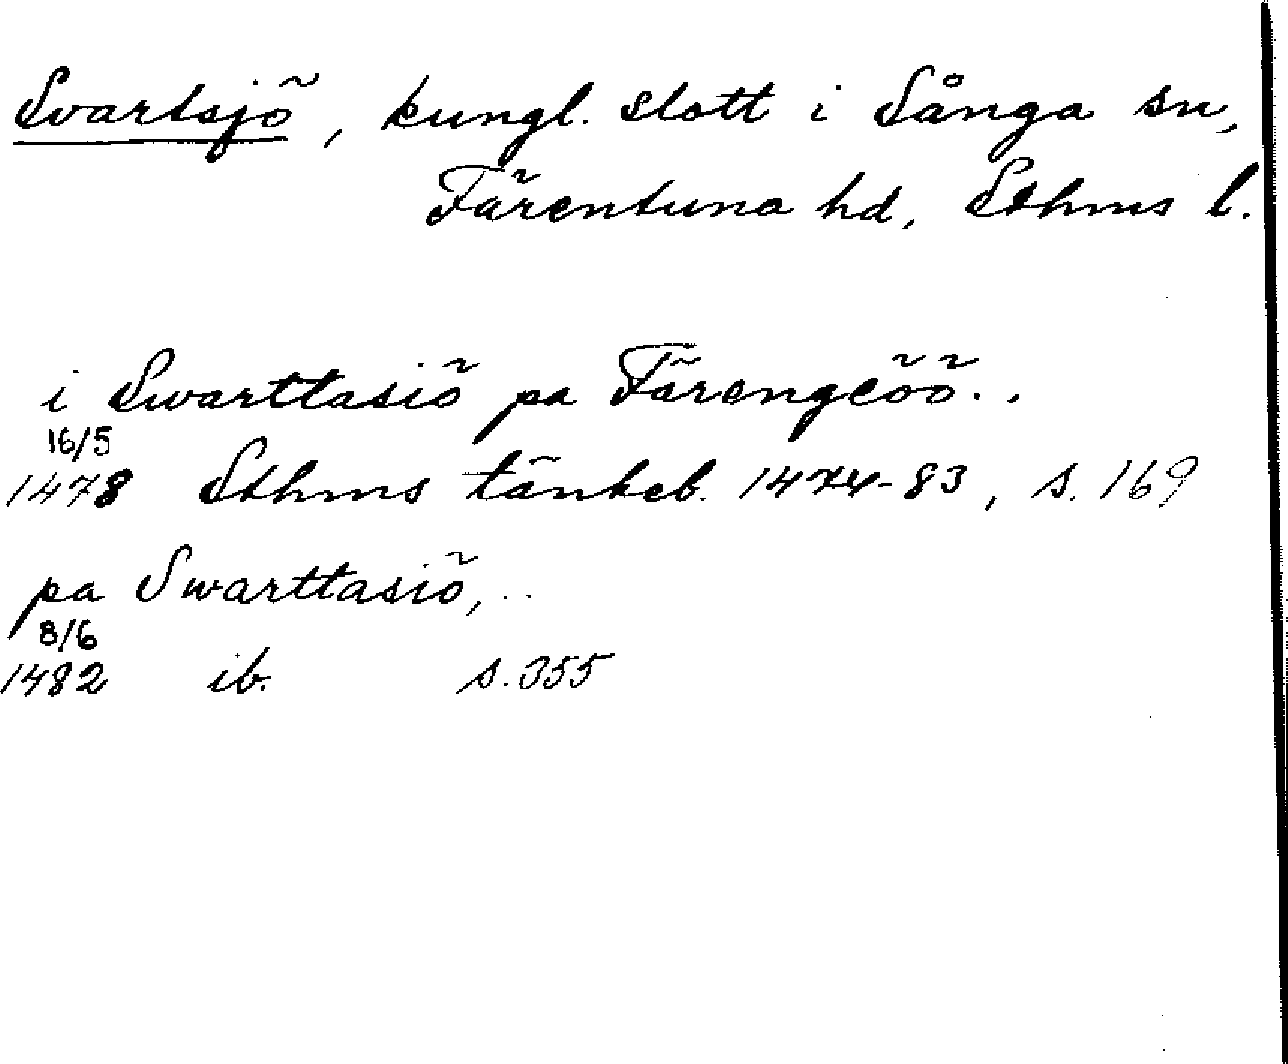 Svartsjö, kungl. slott i Sånga sn,
Färentuna hd, Sthms l.
i Swarttasiö pa Färengeöö..
16/5
1478 Sthms tänkeb. 1474-83, s. 169
pa Swarttasiö, ..
8/6
1482 ib. s. 355